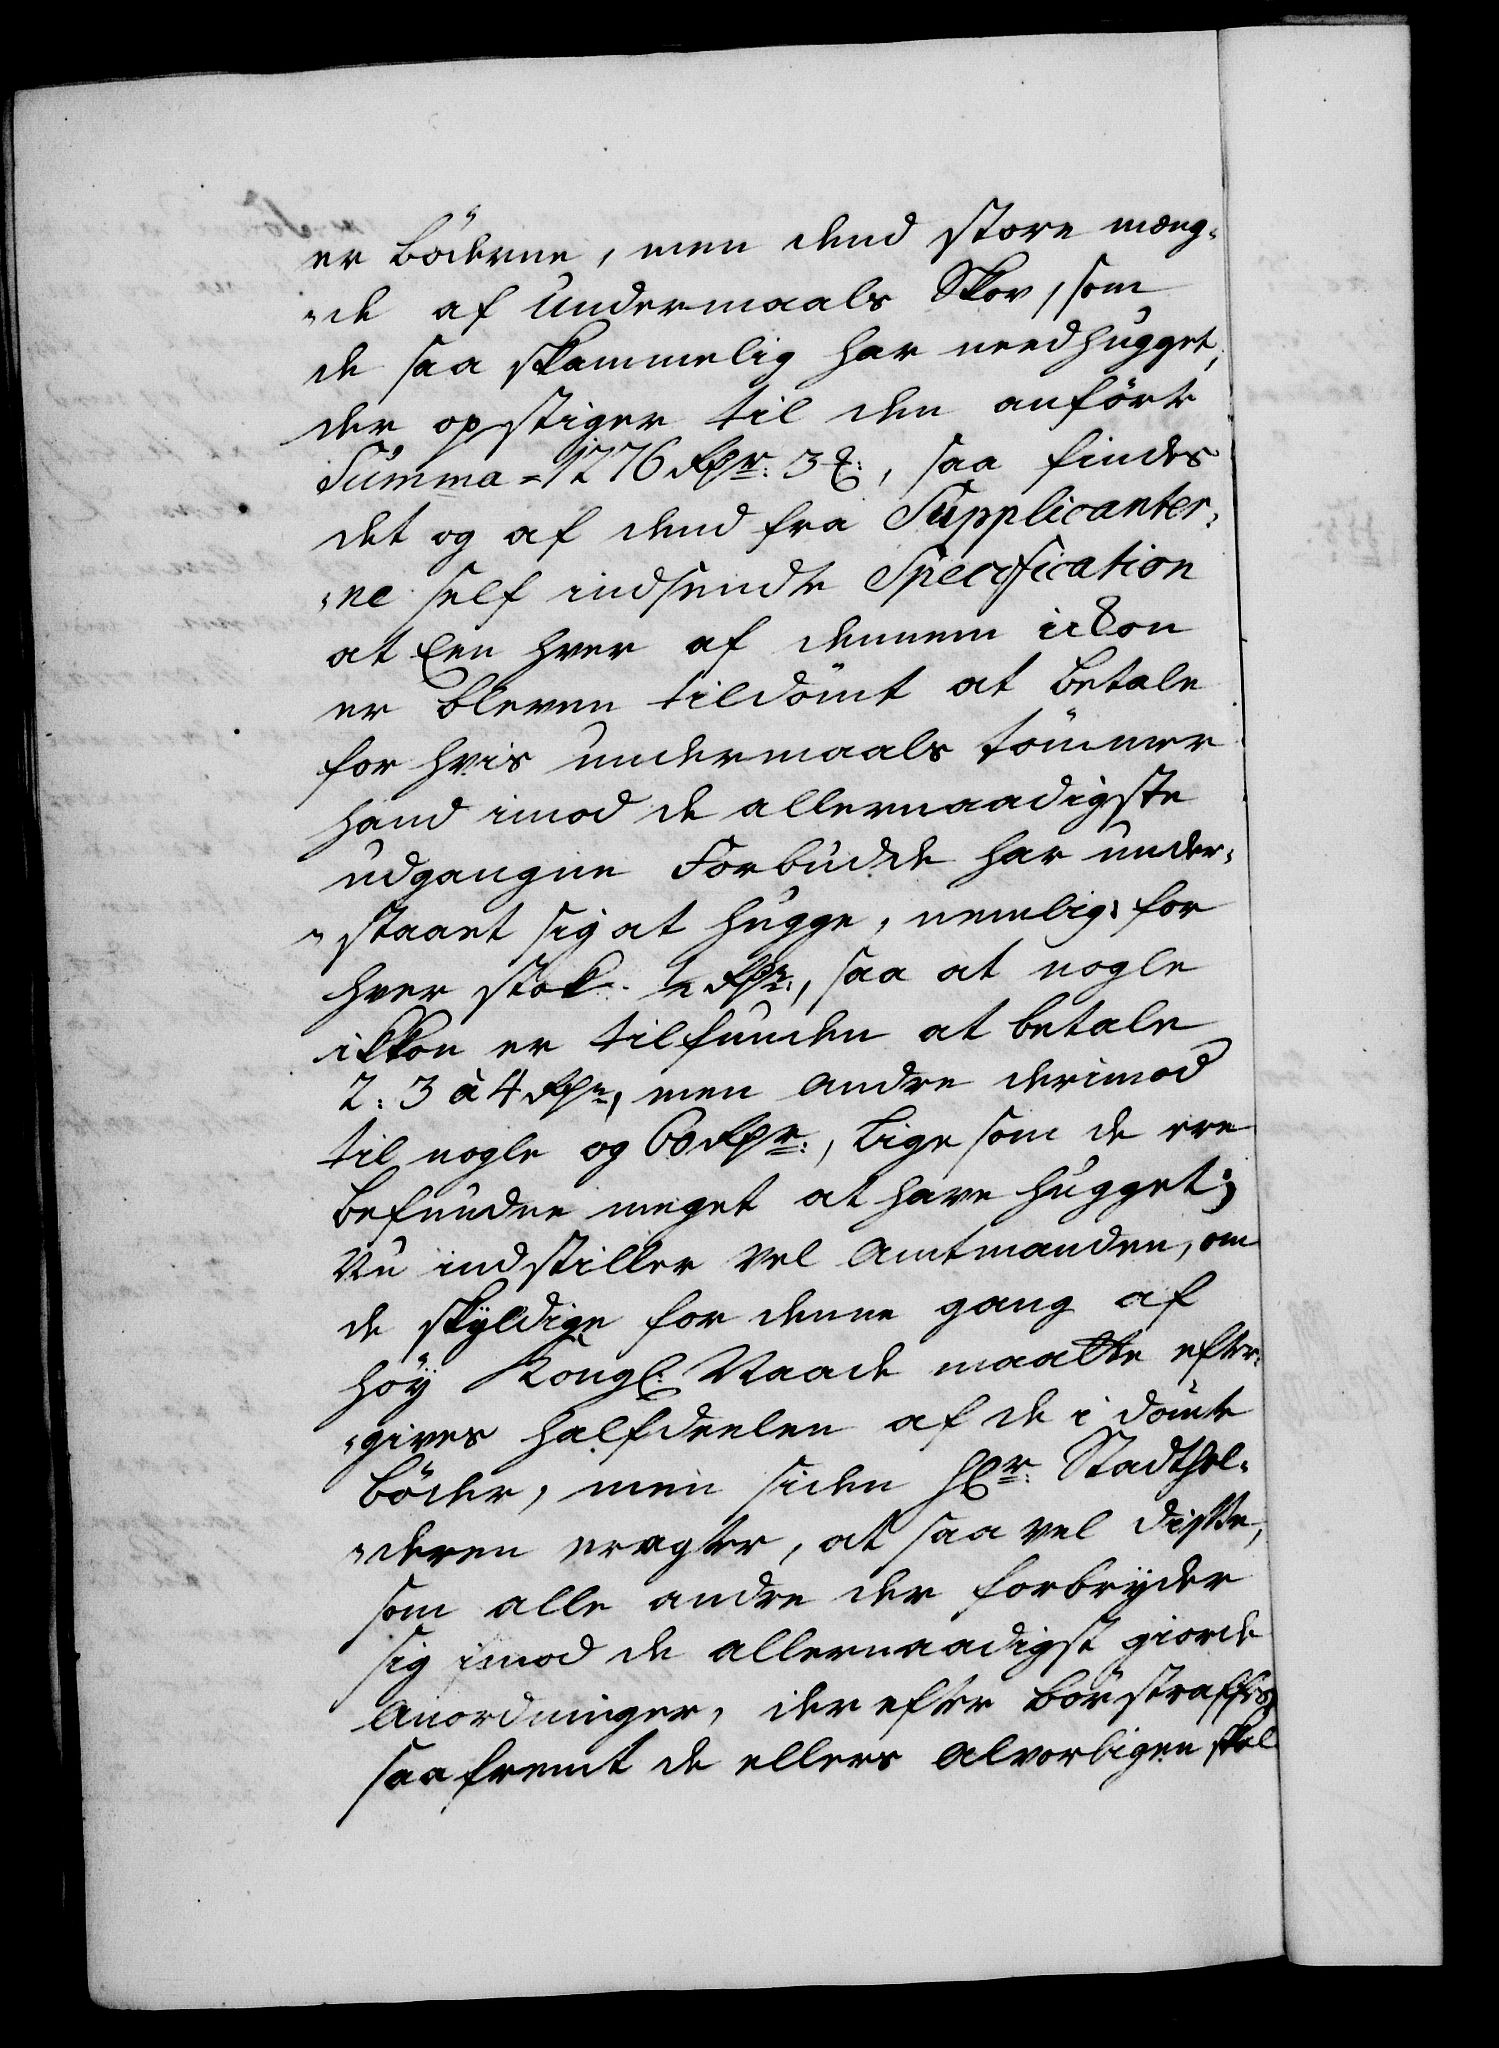 er Böderne, men dend store mæng-
-de af Undermaals Skov, som
de saa skammelig har needhugget,
der opstiger til den anförte
Summa = 1276 Rdr: 3 ꝶ:, saa findes
det og af dend fra Supplicanter-
-ne self indsendte Specification
at Een hver af dennem ickon
er bleven tildömt at betale
for hvis undermaals tömmer
hand imod de allernaadigste
udgangne Forbudde har under-
-staaet sig at hugge, nemlig: for
hver stok ½ Rdr:, saa at nogle
ikkon er tilfunden at betale
2: 3 à 4 Rdr, men andre derimod
til nogle og 60 Rdr:, lige som de ere
befundne meget at have hugget;
Nu indstiller vel Amtmanden, om
de skyldige for denne gang af
höy Kongl: Naade maatte efter-
-gives halfdeelen af de idömte
böder, men siden Hr: Stadthol-
-deren eragter, at saa vel disse,
som alle andre der forbryder
sig imod de allernaadigst giorde
Anordninger, der efter bör straffes,
saafremt de ellers alvorligen skal